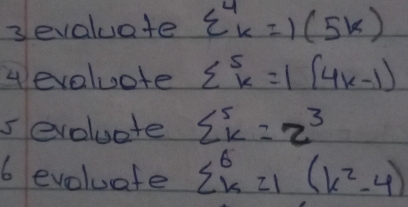 3 evaluate Σ⁴k=1(5k)
4 evaluate Σ⁵k=1(4k-1)
5 evaluate Σ⁵k=2³
6 evaluate Σ⁶k=1 (k²-4)